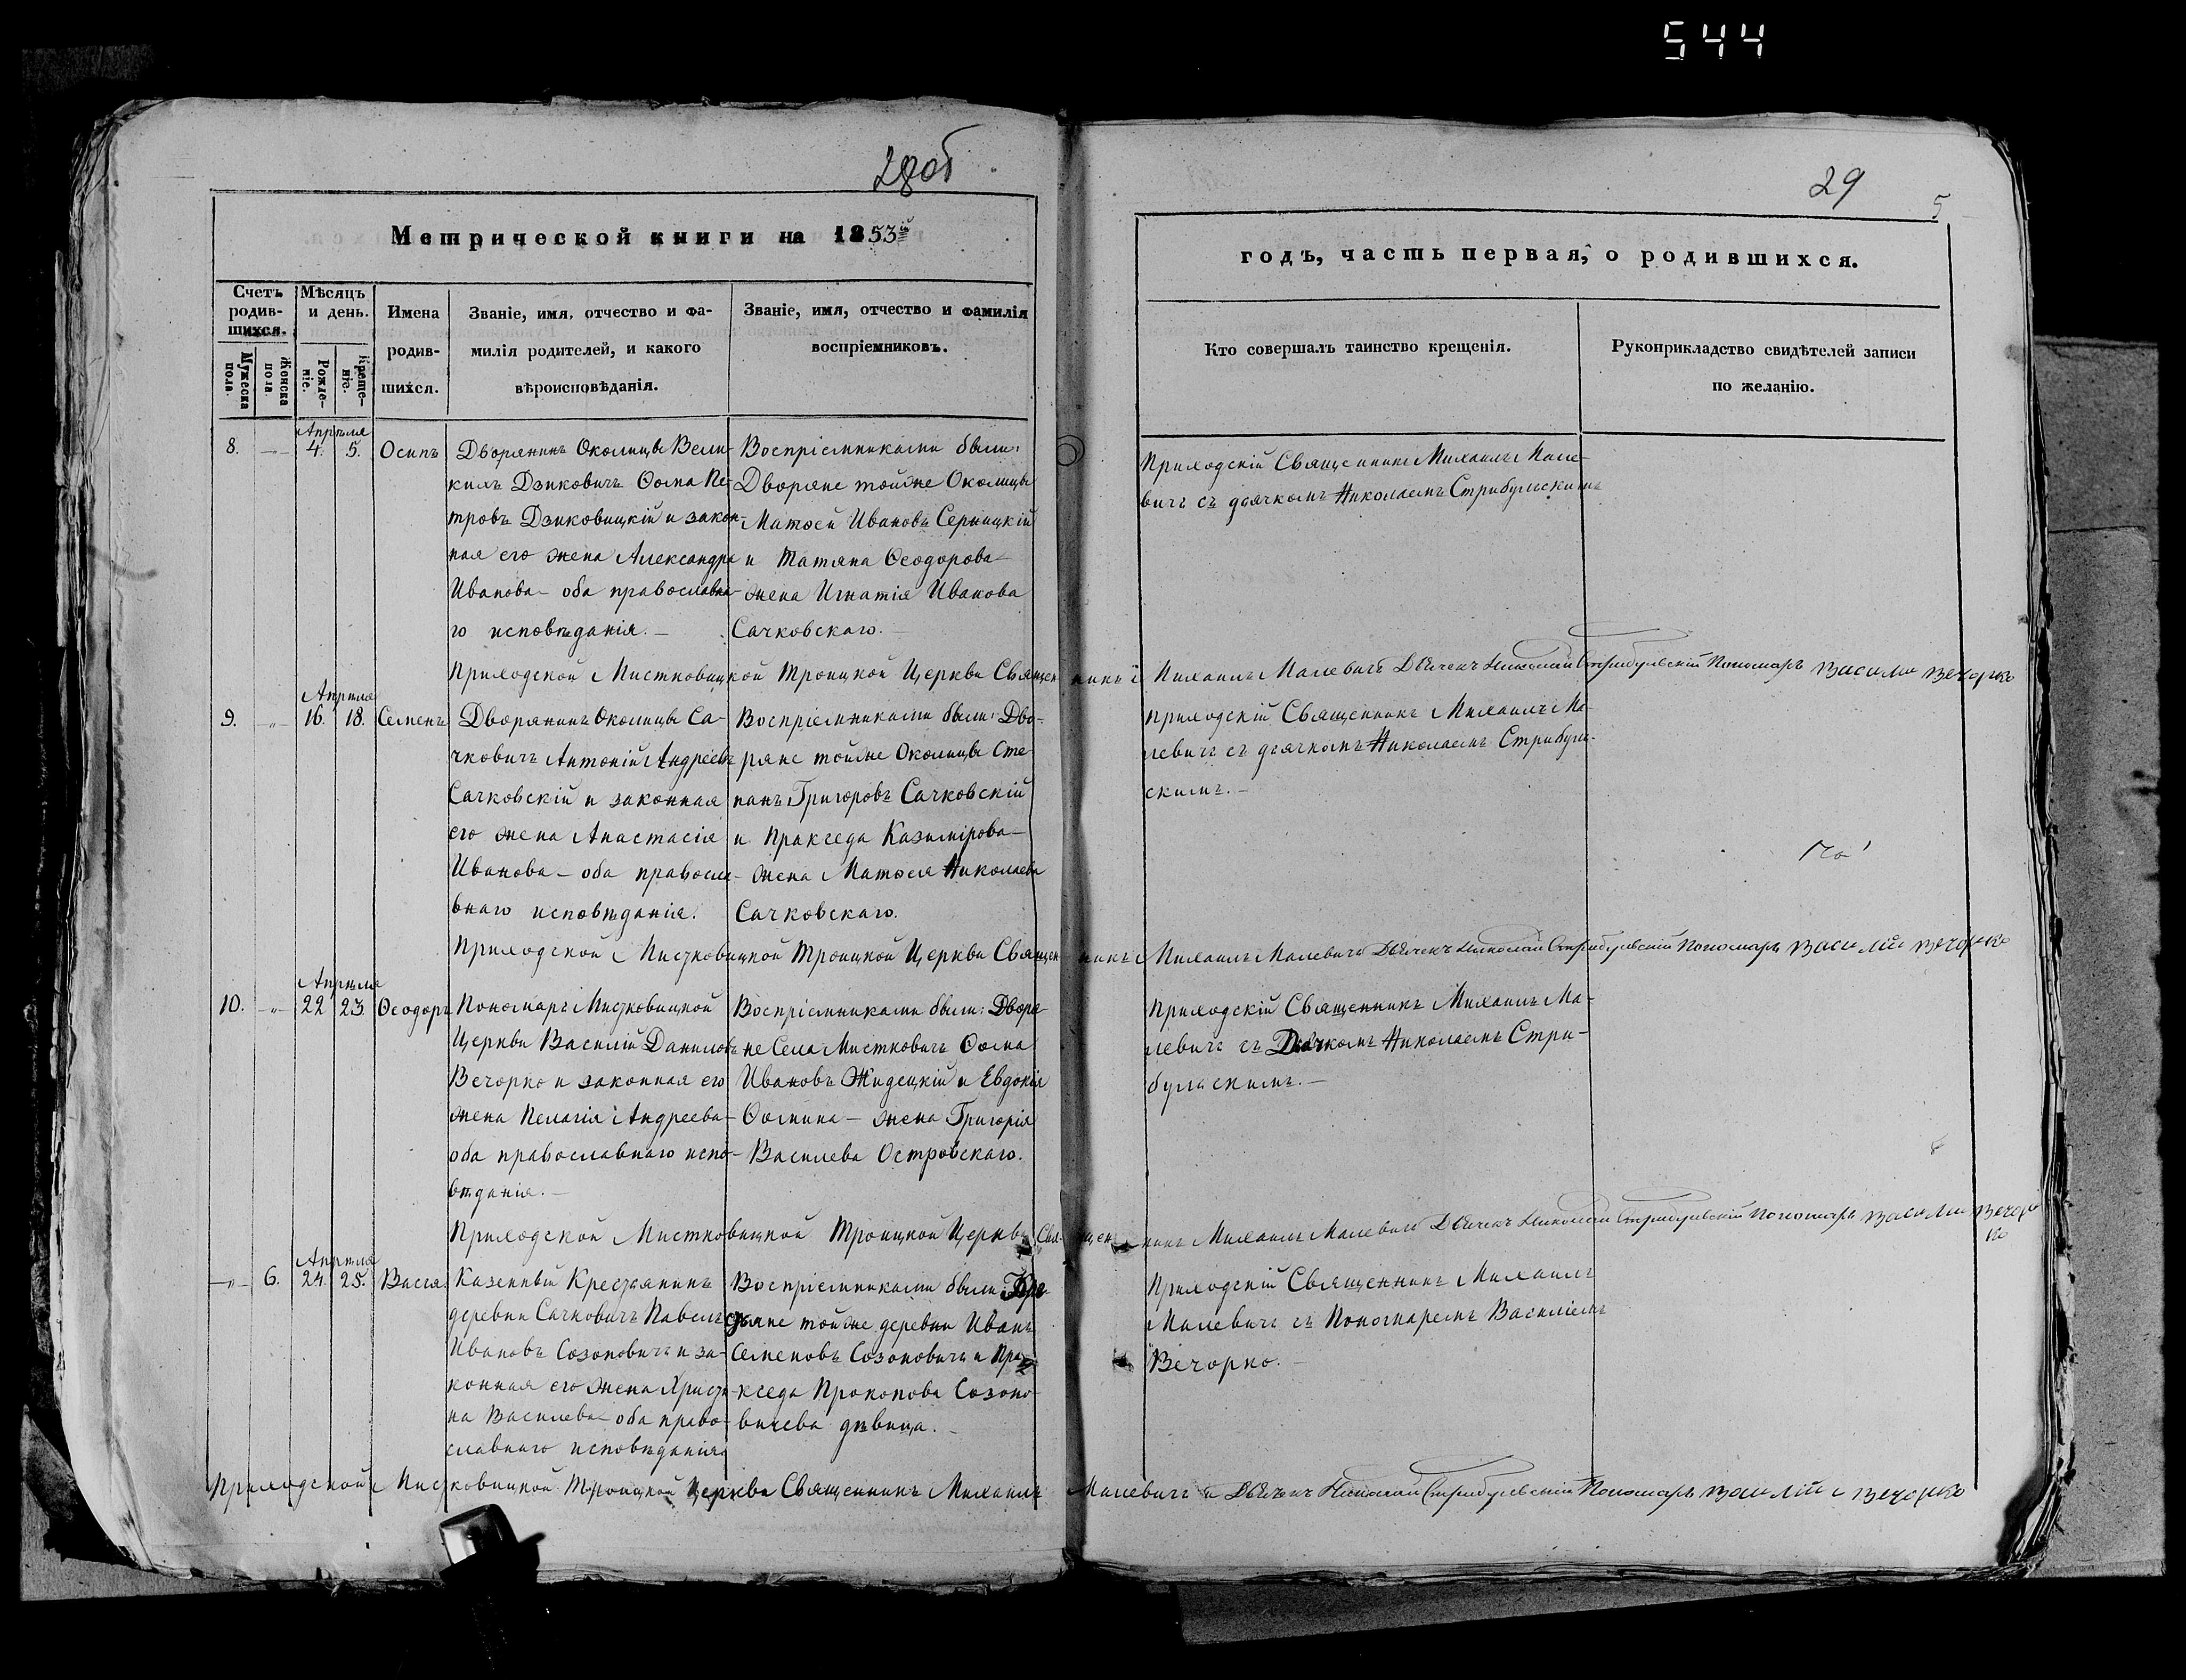 544
28об
29
5
Метрической книги на 1853й
годъ, часть первая, о родившихся.
Счетъ родив-шихся.
Мужеска пола.
Женска пола.
Мѣсяцъ и день.
Рожде-ніе.
Креще-ніе.
Имена родив-шихся.
Званіе, имя, отчество и фа-
милія родителей, и какого
вѣроисповѣданія.
Званіе, имя, отчество и фамилія
воспріемниковъ.
Кто совершалъ таинство крещенія.
Рукоприкладство свидѣтелей записи
по желанію.
8.
Апрѣля
4. 5.
Осипъ
Дворянинъ Околицы Вели-
кихъ Дзиковичъ Ѳома Пе-
тровъ Дзиковицкій и закон-
ная его жена Александра
Иванова – оба православна-
го исповѣданія. –
Воспріемниками были:
Дворяне тойже Околицы
Матѳей Ивановъ Серницкій
и Татяна Ѳеодорова
жена Игнатія Иванова
Сачковскаго. –
Приходскій Священникъ Михаилъ Мале-
вичъ съ дьячкомъ Николаемъ Стрибульскимъ
Приходской Мистковицкой Троицкой Церкви Священникъ Михаилъ Малевичъ Дьячекъ Николай Стрибульскій Пономарь Василий Вечорко
9.
Апрѣля
16. 18.
Семенъ
Дворянинъ Околицы Са-
чковичъ Антоній Андреевъ
Сачковскій и законная
его жена Анастасія
Иванова – оба правосла-
внаго исповѣданія.
Воспріемниками были: Дво-
ряне тойже Околицы Сте
панъ Григоровъ Сачковскій
и Пракседа Казимірова –
жена Матѳея Николаева
Сачковскаго.
Приходскій Священникъ Михаилъ Ма-
левичъ съ дьячкомъ Николаемъ Стрибуль-
скимъ. –
Приходской Мистковицкой Троицкой Церкви Священникъ Михаилъ Малевичъ Дьячекъ Николай Стрибульскій Пономарь Василій Вечорко
10.
Апрѣля
22 23.
Ѳеодоръ
Пономарь Мистковицкой
Церкви Василій Даниловъ
Вечорко и законная его
жена Пелагія Андреева –
оба православнаго испо-
вѣданія. –
Воспріемниками были: Дворя-
не Села Мистковичъ Ѳома
Ивановъ Жидецкій и Евдокія
Ѳомина – жена Григорія
Василева Островскаго.
Приходскій Священникъ Михаилъ Ма-
левичъ съ Дьячкомъ Николаемъ Стри-
бульскимъ. –
Приходской Мистковицкой Троицкой Церкви Священникъ Михаилъ Малевичъ Дьячекъ Николай Стрибульскій Пономарь Василий Вечор
ко
6.
Апрѣля
24. 25.
Васса
Казенный Крестянинъ
деревни Сачковичъ Павелъ
Ивановъ Созоновичъ и за-
конная его жена Христи-
на Василева – оба право-
славнаго исповѣданія
Воспріемниками были Кре-
стьяне тойже деревни Иванъ
Семеновъ Созоновичъ и Пра-
кседа Прокопова Созоно-
вичева дѣвица. –
Приходскій Священникъ Михаилъ
Малевичъ съ Пономаремъ Василіемъ
Вечорко. –
Приходской Мистковицкой Троицкой Церкви Священникъ Михаилъ Малевичъ и Дьячекъ Николай Стрибульскій Пономарь Василій Вечорко